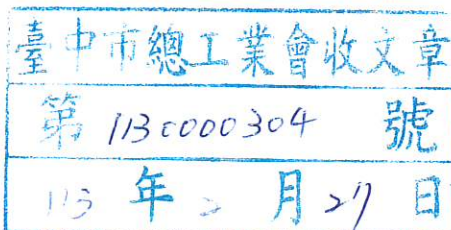 臺中市總工業會收文章
第 113c000304 號
113 年 2 月 27 日